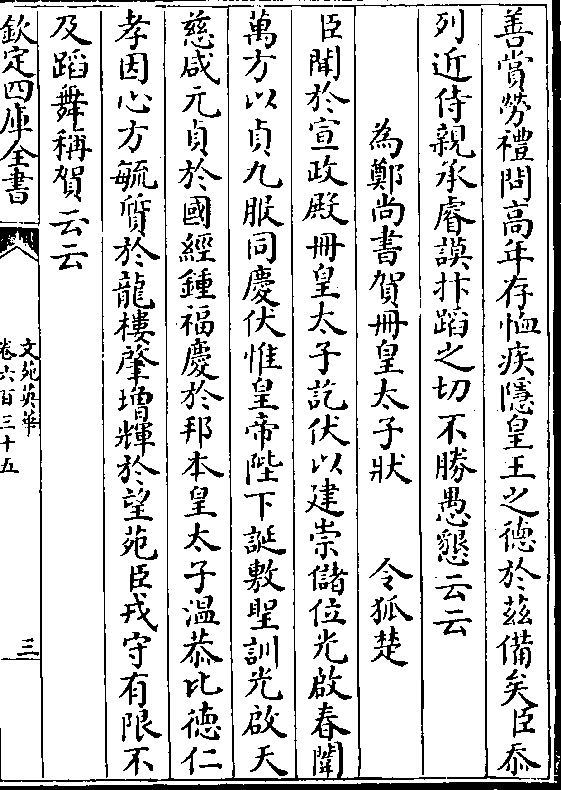 善賞勞禮問高年存恤疾隱皇王之德於茲備矣臣忝
列近侍親承睿謨抃蹈之切不勝愚懇云云
為鄭尚書賀冊皇太子狀　令狐楚
臣聞於宣政殿冊皇太子訖伏以建崇儲位光啟春闈
萬方以貞九服同慶伏惟皇帝陛下誕敷聖訓光啟天
慈咸元貞於國經鍾福慶於邦本皇太子溫恭比德仁
孝因心方毓質於龍樓肇增輝於望苑臣戎守有限不
及蹈舞稱賀云云
欽定四庫全書
文苑英華
卷六百三十五
三